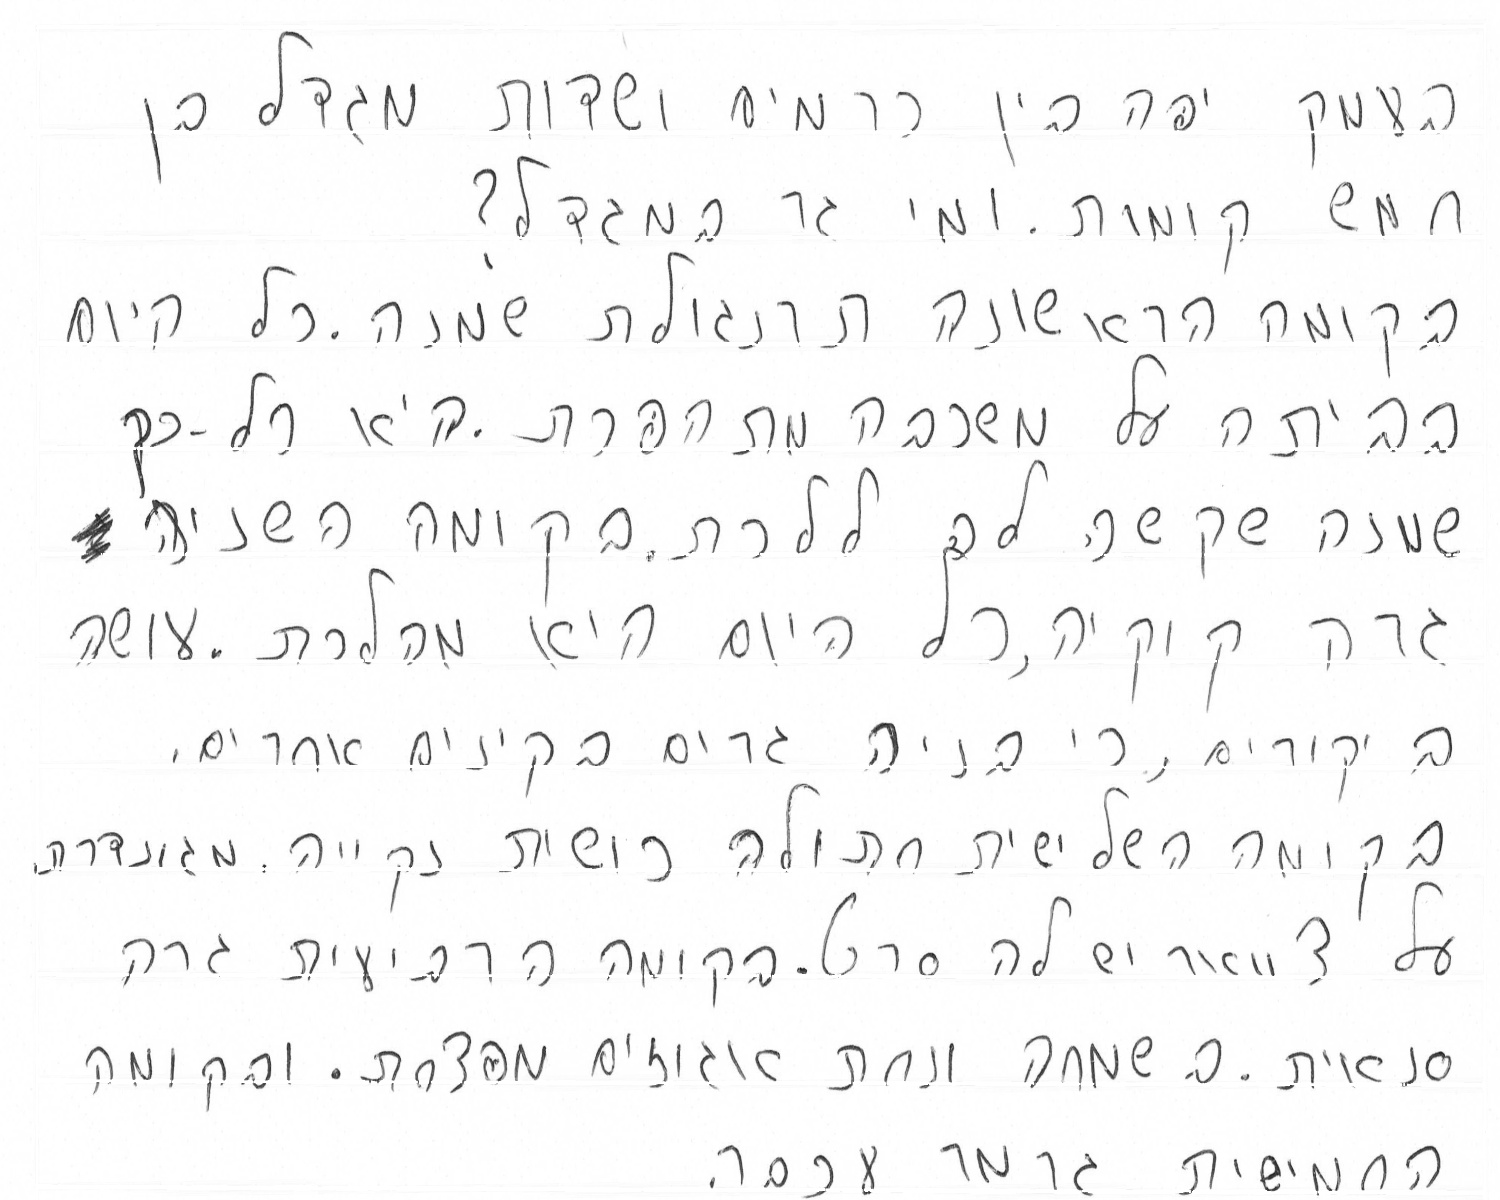 בעמק יפה בין כרמים ושדות מגדל בן
חמש קומות. ומי גר במגדל?
בקומה הראשונה תרנגולת שמנה. כל היום
בביתה על משכבה מתהפכת. היא כל-כך
שמנה שקשה לה ללכת. בקומה השניה
גרה קוקיה, כל היום היא מהלכת. עושה
ביקורים, כי בניה גרים בקינים אחרים.
בקומה השלישית חתולה כושית נקייה. מגונדרת,
על צוואר יש לה סרט. בקומה הרביעית גרה
סנאית. בשמחה ונחת אגוזים מפצחת. ובקומה
החמישית גר מר עכבר.